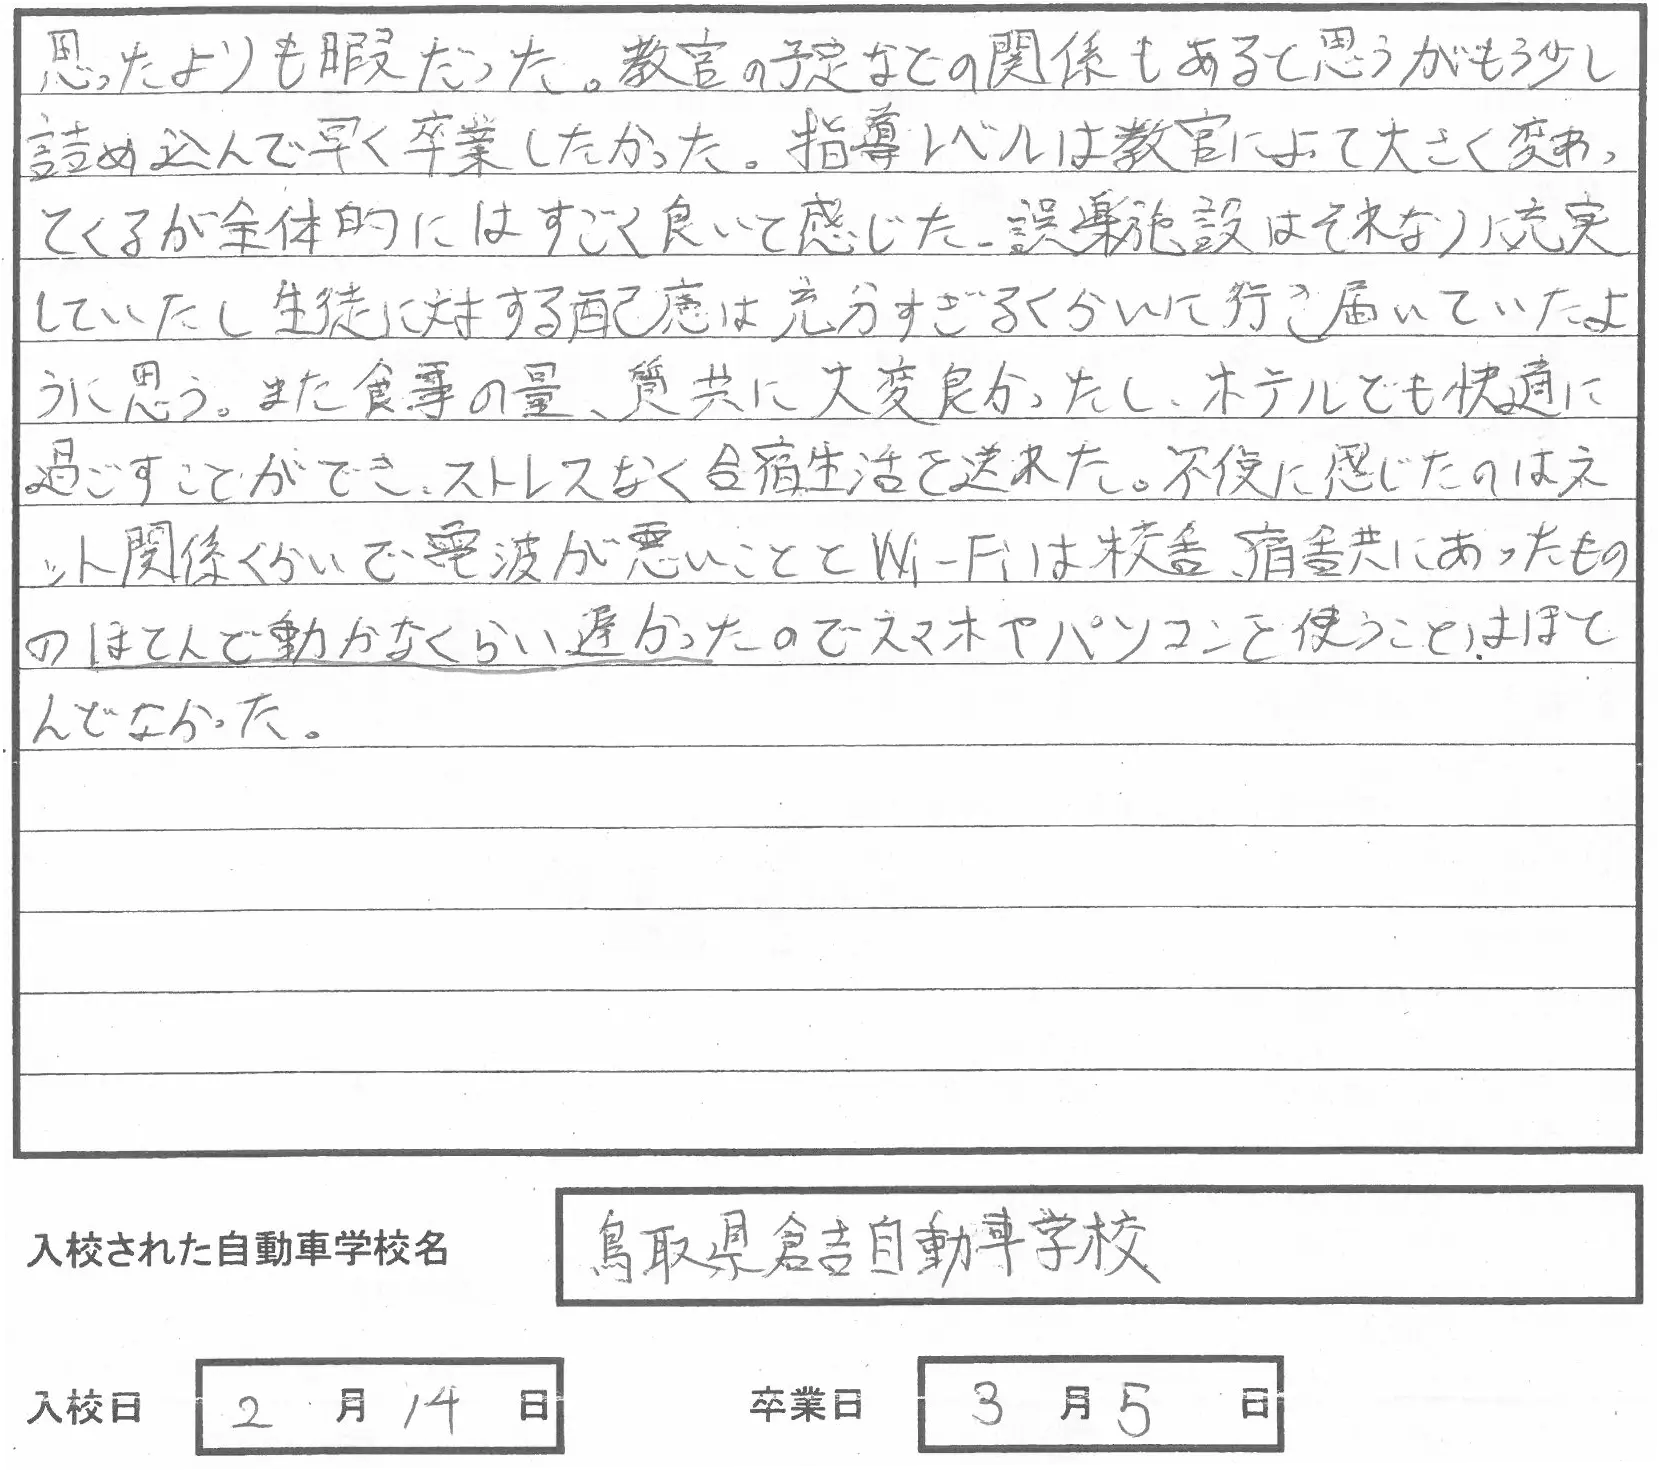 思ったよりも暇だった。教官の予定などの関係もあると思うがもう少し
詰め込んで早く卒業したかった。指導レベルは教官によって大きく変わっ
てくるが全体的にはすごく良いと感じた。誤楽施設はそれなりに充実
していたし生徒に対する配慮は充分すぎるくらいに行き届いていたよ
うに思う。また食事の量、質共に大変良かったし、ホテルでも快適に
過ごすことができ、ストレスなく合宿生活を送れた。不便に感じたのはネ
ット関係くらいで電波が悪いこととWi-Fiは校舎、宿舎共にあったもの
のほとんど動かなくらい遅かったのでスマホやパソコンを使うことはほと
んどなかった。
入校された自動車学校名 鳥取県倉吉自動車学校
入校日 2月14日 卒業日 3月5日